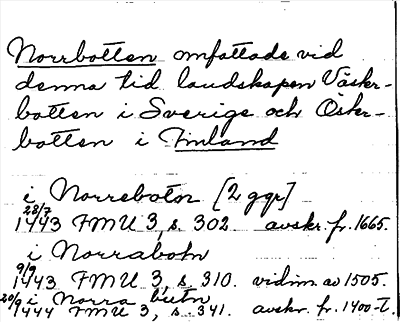 Norrbotten omfattade vid
denna tid landskapen Väster-
botten i Sverige och Öster-
botten i Finland
i Norrebotn [2 ggr]
28/7
1443 FMU 3, s. 302. avskr. fr. 1665.
i Norrabotn
9/9
1443 FMU 3, s. 310. vidim. av 1505.
i Norra butn
20/9 1444 FMU 3, s. 341. avskr. fr. 1400-t.